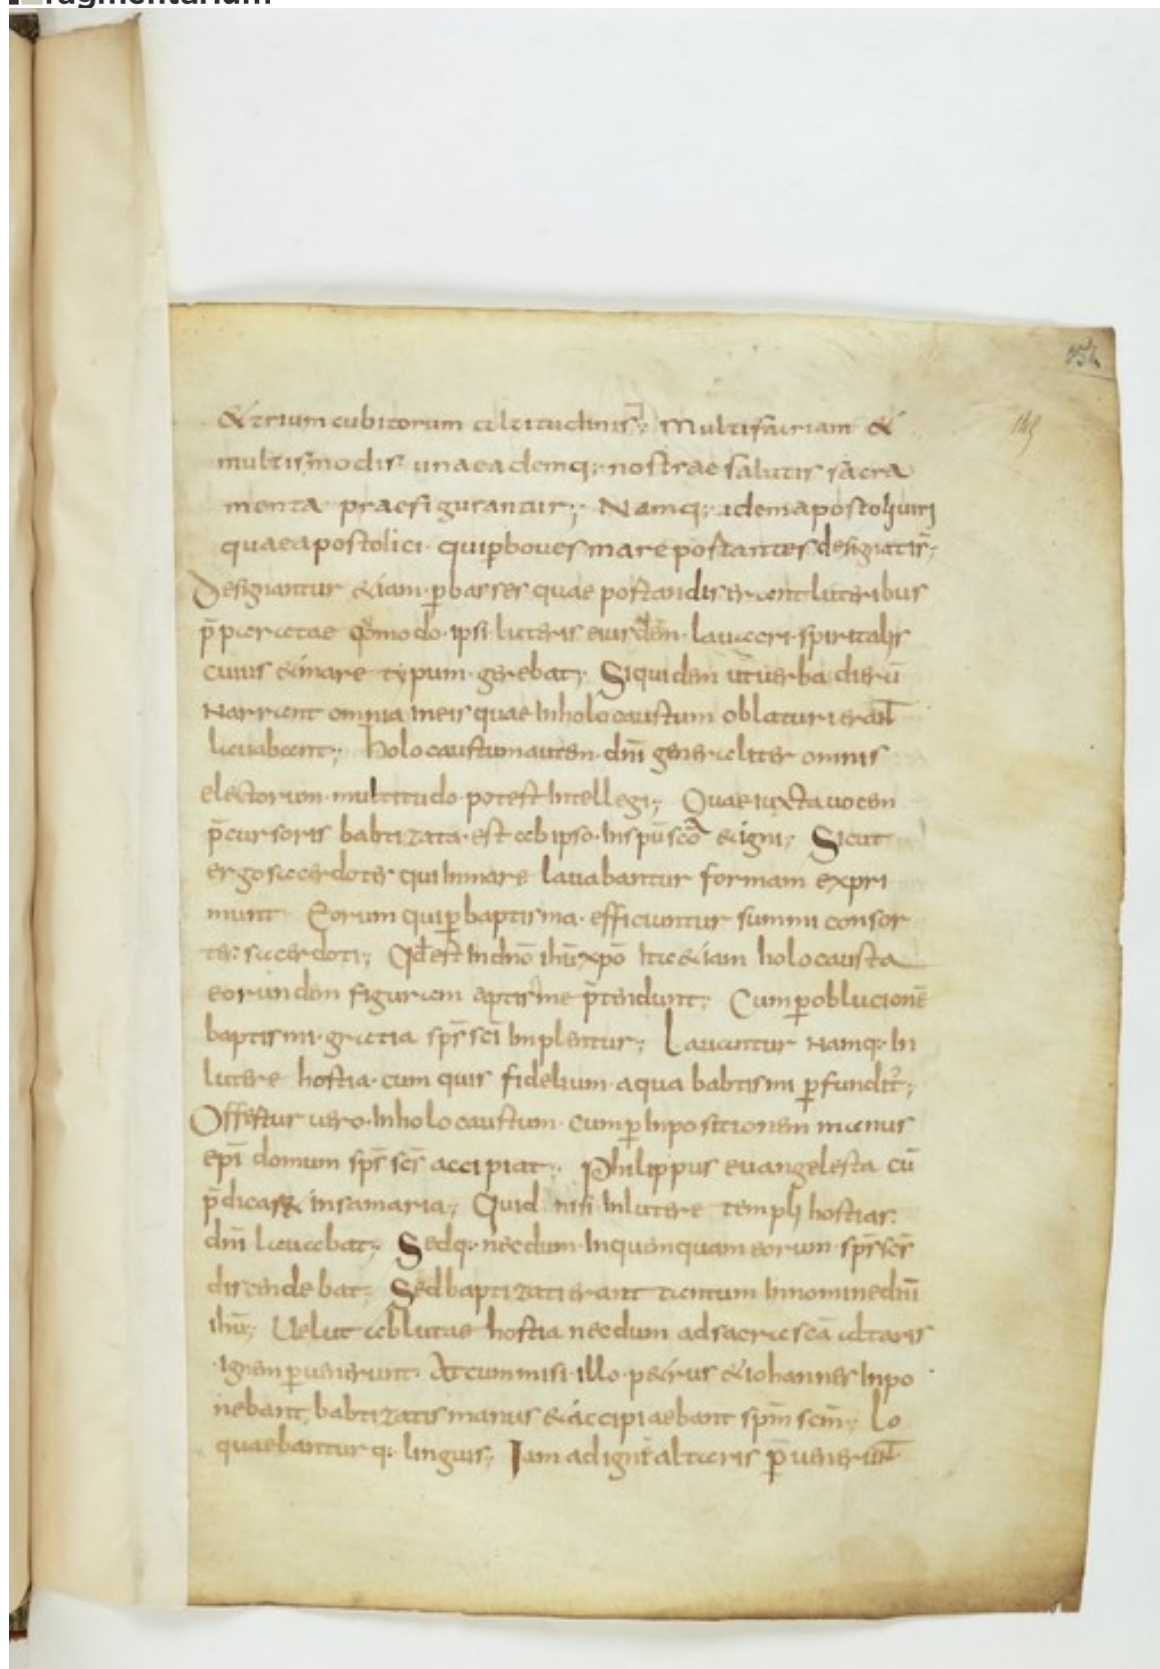 ragmentarium
154
149
& trium cubitorum altitudinis; Multifariam &
multismodis unaeademq; nostrae salutis sacra
menta praefigurantur; Namq; idem apostoli uiri
quae apostolici quip boues mare portantes designatis;
Designantur &iam p bases quae portandis erant luteribus
p̄paratae q̄modo ipsi luteris eiusdem lauacri spiritalis
cuius & mare typum gerebat; Siquidem ut uerba dierū
Narrant omnia in eis quae in holocaustum oblaturi erant
lauabant; holocaustum autem dn̄i generaliter omnis
electorum multitudo potest intellegi; Quae iuxta uocem
p̄cursoris babtizata est ab ipso in spū scō & igni; Sicut
ergo sacerdotes qui in mare lauabantur formam expri
munt Eorum quip baptisma efficiuntur summi consor
tes sacerdoti; Qd̄ est in dn̄o ihū xp̄o Ita &iam holocausta
eorundem figuram aptisme p̄tendunt; Cum p oblucionē
baptismi gratia sp̄s sc̄i implentur; Lauantur Namq; in
lutere hostia cum quis fidelium aqua babtismi pfundit̄;
Offertur uero in holocaustum cum p inpositionem manus
ep̄i domum sp̄s sc̄s accipiat; Philippus euangelesta cū
p̄dicar& in samaria; Quid nisi in lutere templi hostias
dn̄i lauabat; Sedq; necdum in quemquam eorum sp̄s sc̄s
discendebat; Sed baptizati erant tantum in nomine dn̄i
ihū; Uelut ablutae hostia necdum ad sacrascā altaris
ignem puenerunt At cum misi illo p&rus & iohannes inpo
nebant babtizatis manus & accipiaebant sp̄m sc̄m; Lo
quaebantur q; linguis; Iam ad ignē altaris p̄uenerunt